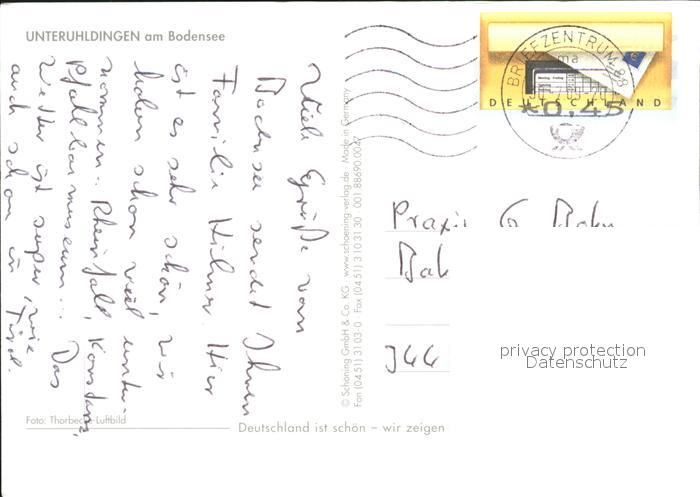 UNTERUHLDINGEN am Bodensee
Viele Grüße vom
Bodensee sendet Ihnen
Familie Hilmer. Hier
ist es sehr schön, wir
haben schon viel unter-
nommen: Rheinfall, Konstanz,
Pfahlbaumuseum... Das
Wetter ist super, wie
auch schon in Tirol.
Foto: Thorbecke-Luftbild
Deutschland ist schön – wir zeigen
© Schöning GmbH & Co. KG · www.schoening-verlag.de · Made in Germany
Fon (04 51) 31 03-0 · Fax (04 51) 3 10 31 30 · 001 88690 0047
BRIEFZENTRUM 88
ma
DEUTSCHLAND
*0,45
Praxis
344
privacy protection
Datenschutz